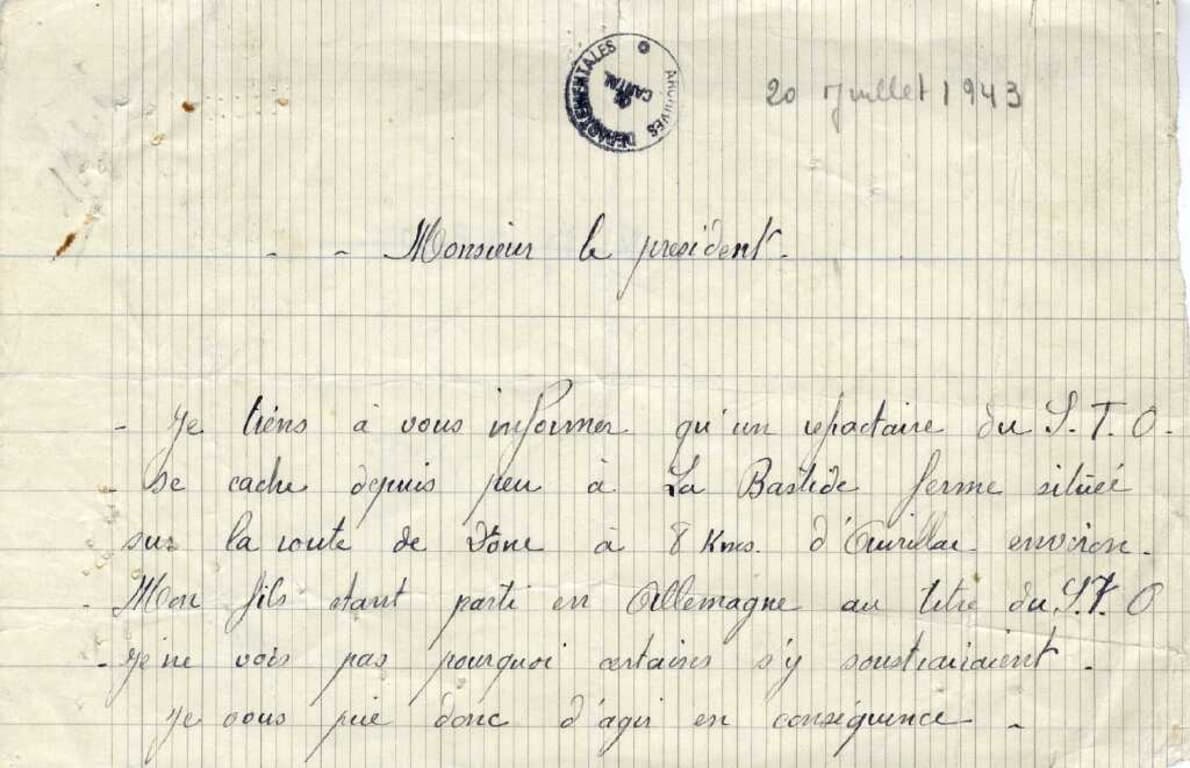 ARCHIVES DÉPARTEMENTALES
CANTAL
20 Juillet 1943
- - Monsieur le president -
- Je tiéns à vous informer qu'un refractaire du S.T.O.
- se cache depuis peu à La Bastide ferme situéé
sur la route de à 8 Kms. d'Aurillac environ.
- Mon fils etant parti en Allemagne au titre du S.T.O
- je ne vois pas pourquoi certaines s'y soustrairaient.
Je vous prie donc d'agir en conséquence -